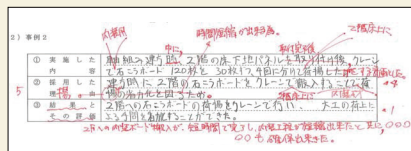 2）事例2
内装用
中に、
時間短縮が出来る。
取付完了後
2階床上に
① 実施した内容
軸組み建て時、2階の床下地パネルを取り付け後、クレーン
で石こうボード120枚を30枚ずつ4回に分けて荷揚した
② 採用した理由
建て時に2階の石こうボードをクレーンで搬入することで荷
揚の省力化を図るため。
5
③ 結果とその評価
2階への石こうボードの荷揚をクレーンで行い、大工の荷上に
よる手間を省略することができた。
2階への内装ボード搬入が、短時間で完了し、内装工程が短縮出来たと共に、○○○
○○も確保出来た。